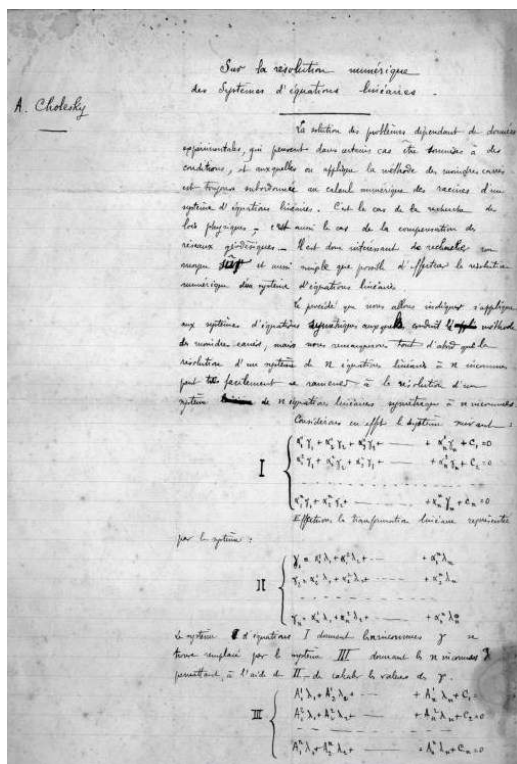 Sur la résolution numérique
des Systèmes d'équations linéaires.
A. Cholesky
La solution des problèmes dépendant de données
expérimentales, qui peuvent dans certains cas être soumises à des
conditions, et auxquelles on applique la méthode des moindres carrés
est toujours subordonnée au calcul numérique des racines d'un
système d'équations linéaires. C'est le cas de la recherche des
lois physiques ; c'est aussi le cas de la compensation des
réseaux géodésiques. Il est donc intéressant de rechercher un
moyen sûr et aussi simple que possible d'effectuer la résolution
numérique d'un système d'équations linéaires
Le procédé que nous allons indiquer s'applique
aux systèmes d'équations symétriques auxquels conduit la méthode
des moindres carrés, mais nous remarquerons tout d'abord que la
résolution d'un système de n équations linéaires à n inconnues
peut très facilement se ramener à la résolution d'un
système de n équations linéaires symétriques à n inconnues.
Considérons en effet le système suivant :
I
α¹₁γ₁ + α¹₂γ₂ + α¹₃γ₃ + + α¹ₙγₙ + C₁ = 0
α²₁γ₁ + α²₂γ₂ + α²₃γ₃ + + α²ₙγₙ + C₂ = 0
αⁿ₁γ₁ + αⁿ₂γ₂ + + αⁿₙγₙ + Cₙ = 0
Effectuons la transformation linéaire représentée
par le système :
II
γ₁ = α¹₁λ₁ + α²₁λ₂ + + αⁿ₁λₙ
γ₂ = α¹₂λ₁ + α²₂λ₂ + + αⁿ₂λₙ
γₙ = α¹ₙλ₁ + α²ₙλ₂ + + αⁿₙλₙ
Le système d'équations I donnant les inconnues γ se
trouve remplacé par le système III donnant les n inconnues λ
permettant, à l'aide de II de calculer les valeurs des γ.
III
A¹₁λ₁ + A¹₂λ₂ + + A¹ₙλₙ + C₁ =
A²₁λ₁ + A²₂λ₂ + + A²ₙλₙ + C₂ = 0
Aⁿ₁λ₁ + Aⁿ₂λ₂ + + Aⁿₙλₙ + Cₙ = 0